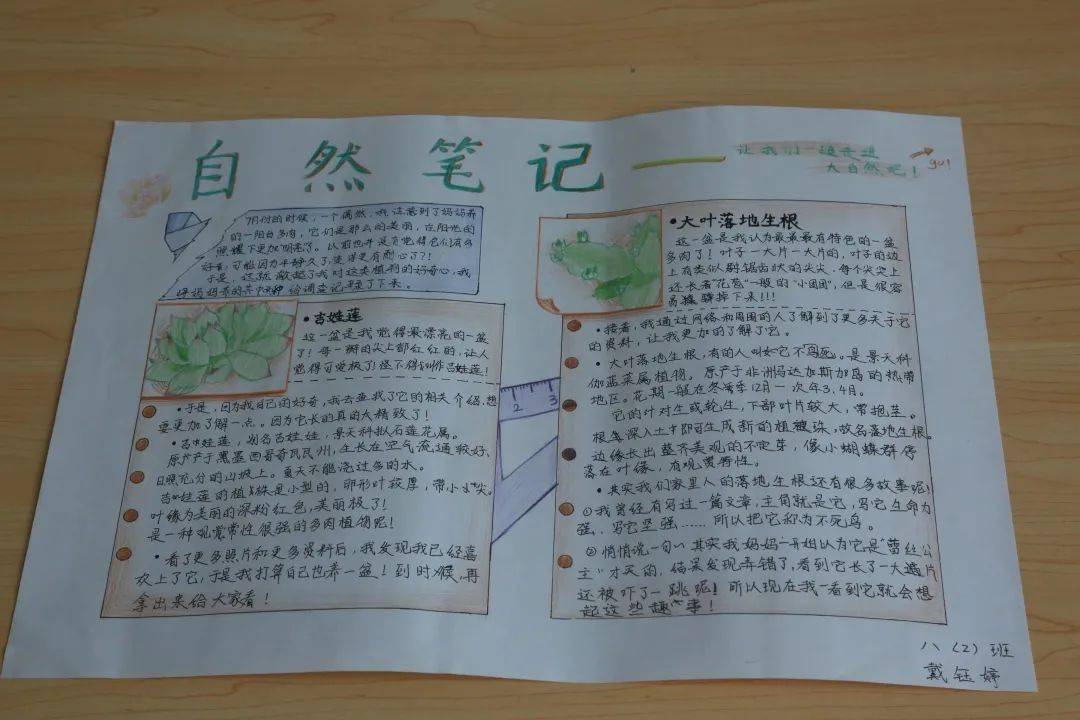 自然笔记
让我们一起走进
大自然吧！
go!
7月份的时候，一个偶然，我注意到了妈妈养
的一阳台多肉，它们是那么的美丽，在阳光的
照耀下更加明亮了。以前也并没有觉得它们有多
好看，可能因为平静久了，变得更有耐心了？！
于是，这就激起了我对这类植物的好奇心，我
给调查记录了下来。
•吉娃莲
这一盆是我觉得最漂亮的一盆
了！每一瓣的尖上都红红的，让人
觉得可爱极了！怪不得叫作吉娃莲！
•于是，因为我自己的好奇，我去查找了它的相关介绍，想
要更加了解一点。因为它长的真的太精致了！
•吉娃莲，别名吉娃娃，景天科拟石莲花属。
原产于墨西哥奇瓦瓦州，生长在空气流通较好、
日照充分的山坡上。夏天不能浇过多的水。
吉娃莲的植株是小型的，卵形叶较厚，带小尖。
叶缘为美丽的深粉红色，美丽极了！
是一种观赏常性很强的多肉植物呢！
•看了更多照片和更多资料后，我发现我已经喜
欢上了它，于是我打算自己也养一盆！到时候，再
拿出来给大家看！
•大叶落地生根
这一盆是我认为最最最有特色的一盆
多肉了！叶子一大片一大片的，叶子的边
上有类似锯齿状的尖尖，每个尖尖上
还长着“花苞”一般的“小团团”，但是很容
易掉下来！！！
•接着，我通过网络和周围的人了解到了更多关于它
的资料，让我更加的了解了它。
•大叶落地生根，有的人叫它不死鸟。是景天科
伽蓝菜属植物。原产于非洲马达加斯加岛的热带
地区。花期一般在冬季12月－次年3、4月。
它的叶对生或轮生，下部叶片较大，常抱茎。
根能深入土中即可生成新的植株，故名落地生根。
边缘长出整齐美观的不定芽，像小蝴蝶群停
落在叶缘，有观赏特性。
•其实我们家里人的落地生根还有很多故事呢！
①我曾经有写过一篇文章，主角就是它，写它生命力
强、写它坚强……所以把它称为不死鸟。
②悄悄说一句~其实我妈妈一开始以为它是“蕾丝公
主”才买的，结果发现弄错了，看到它长了一大遍片
还被吓了一跳呢！所以现在我一看到它就会想
起这些趣事！
2 3
八（2）班
戴钰婷